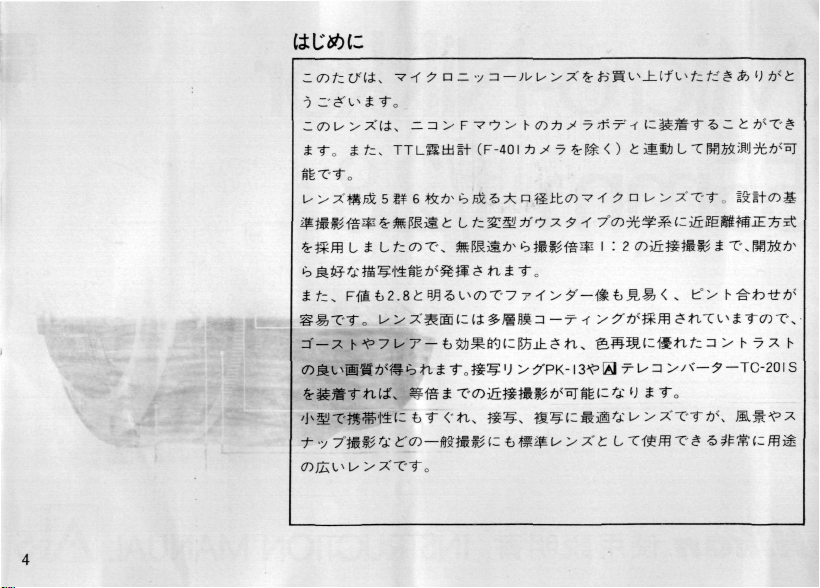 はじめに
このたびは、マイクロニッコールレンズをお買い上げいただきありがと
うございます。
このレンズは、ニコンFマウントのカメラボディに装着することができ
ます。また、TTL露出計(F-401カメラを除く)と連動して開放測光が可
能です。
レンズ構成5群6枚から成る大口径比のマイクロレンズです。設計の基
準撮影倍率を無限遠とした変型ガウスタイプの光学系に近距離補正方式
を採用しましたので、無限遠から撮影倍率1:2の近接撮影まで、開放か
ら良好な描写性能が発揮されます。
また、F値も2.8と明るいのでファインダー像も見易く、ピント合わせが
容易です。レンズ表面には多層膜コーティングが採用されていますので、
ゴーストやフレアーも効果的に防止され、色再現に優れたコントラスト
の良い画質が得られます。接写リングPK-13やAIテレコンバーターTC-201S
を装着すれば、等倍までの近接撮影が可能になります。
小型で携帯性にもすぐれ、接写、複写に最適なレンズですが、風景やス
ナップ撮影などの一般撮影にも標準レンズとして使用できる非常に用途
の広いレンズです。
4